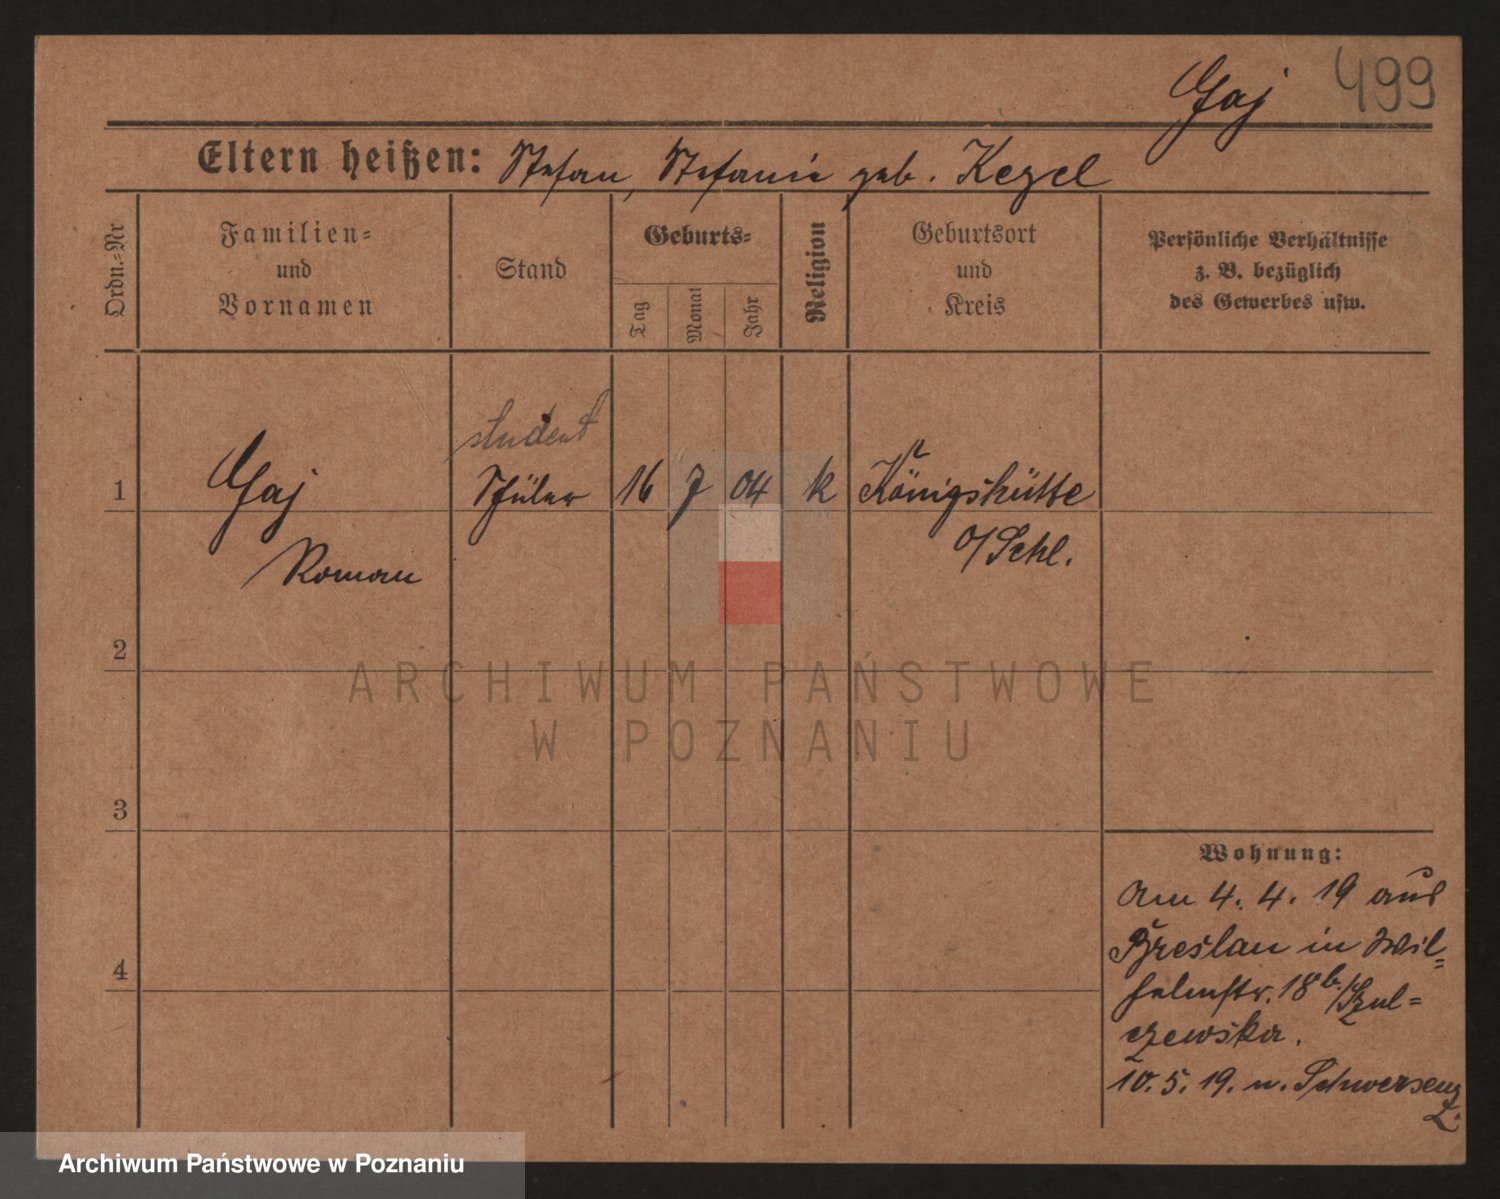 Gaj 499
Eltern heißen: Stefan, Stefanie geb. Kegel
Ordn.-Nr
Familien-
und
Vornamen
Stand
Geburts-
Tag
Monat
Jahr
Religion
Geburtsort
und
Kreis
Persönliche Verhältnisse
z. B. bezüglich
des Gewerbes usw.
student
1 Gaj Schüler 16 7 04 k Königshütte
Roman o/Schl.
2
ARCHIWUM PAŃSTWOWE
W POZNANIU
3
4
Wohnung:
Am 4. 4. 19 aus
Breslau in Wil=
helmstr. 18b./Szul=
czewska.
10. 5. 19. n. Schwersenz
Archiwum Państwowe w Poznaniu